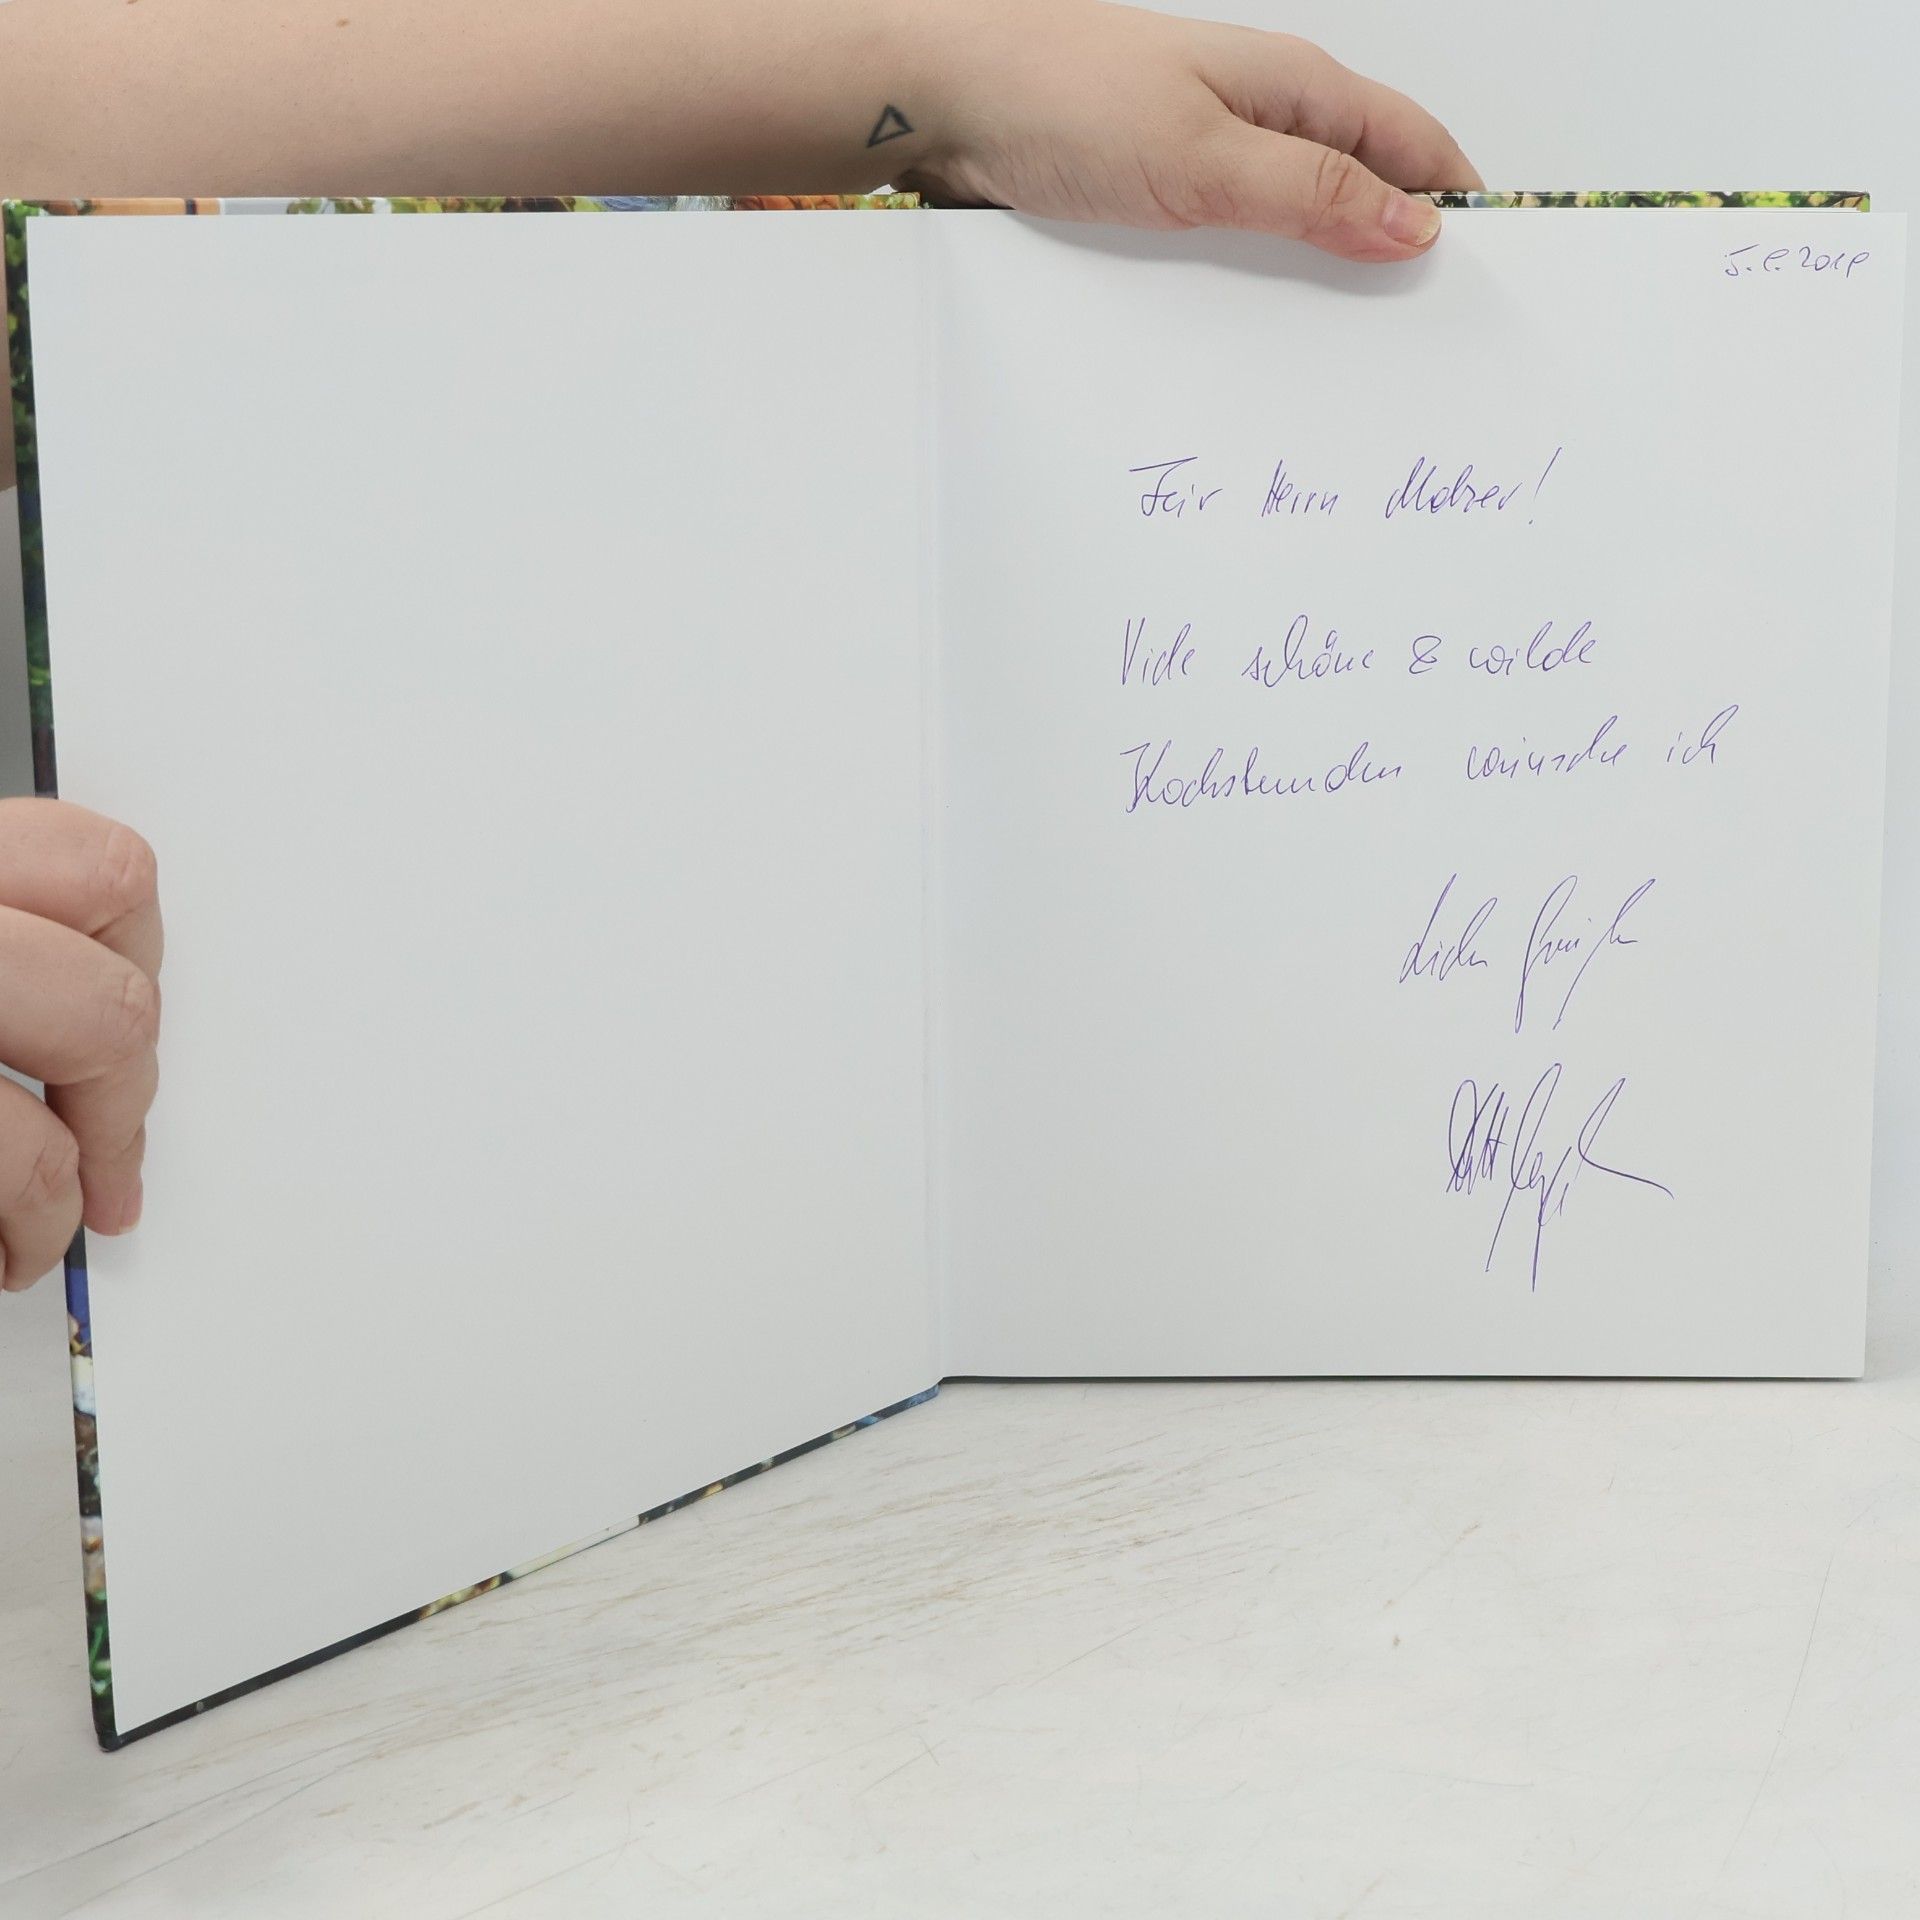 Für Herrn
Viele schöne & wilde
Kochstunden wünsche ich
Liebe Grüße